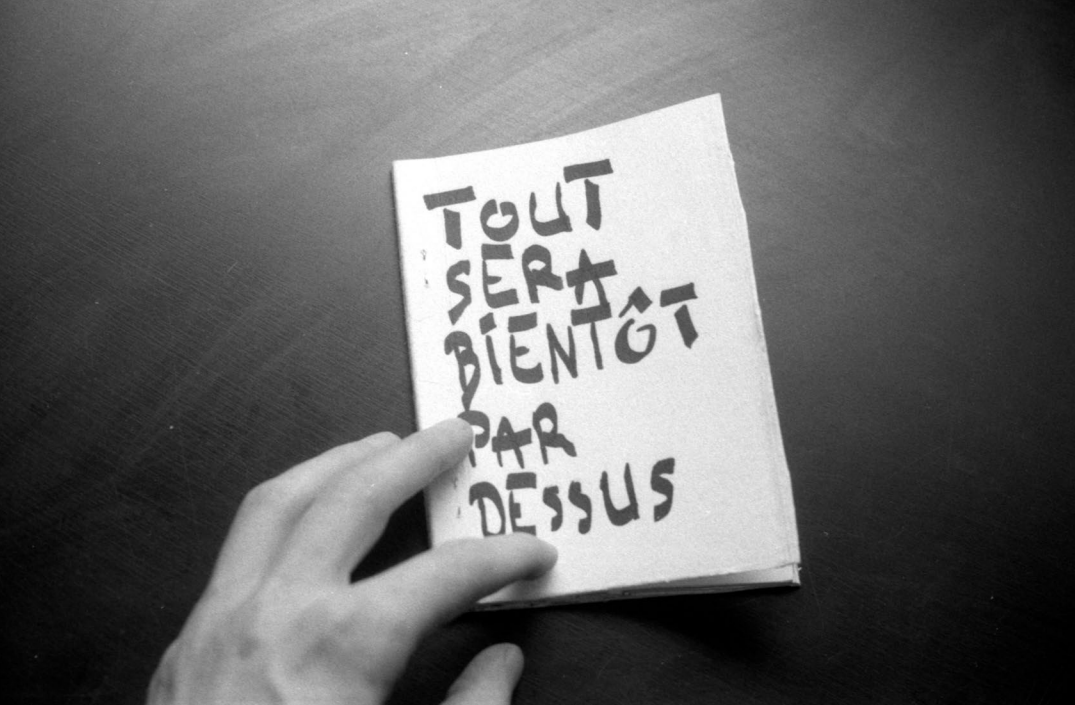 TOUT
SERA
BIENTÔT
PAR
DESSUS